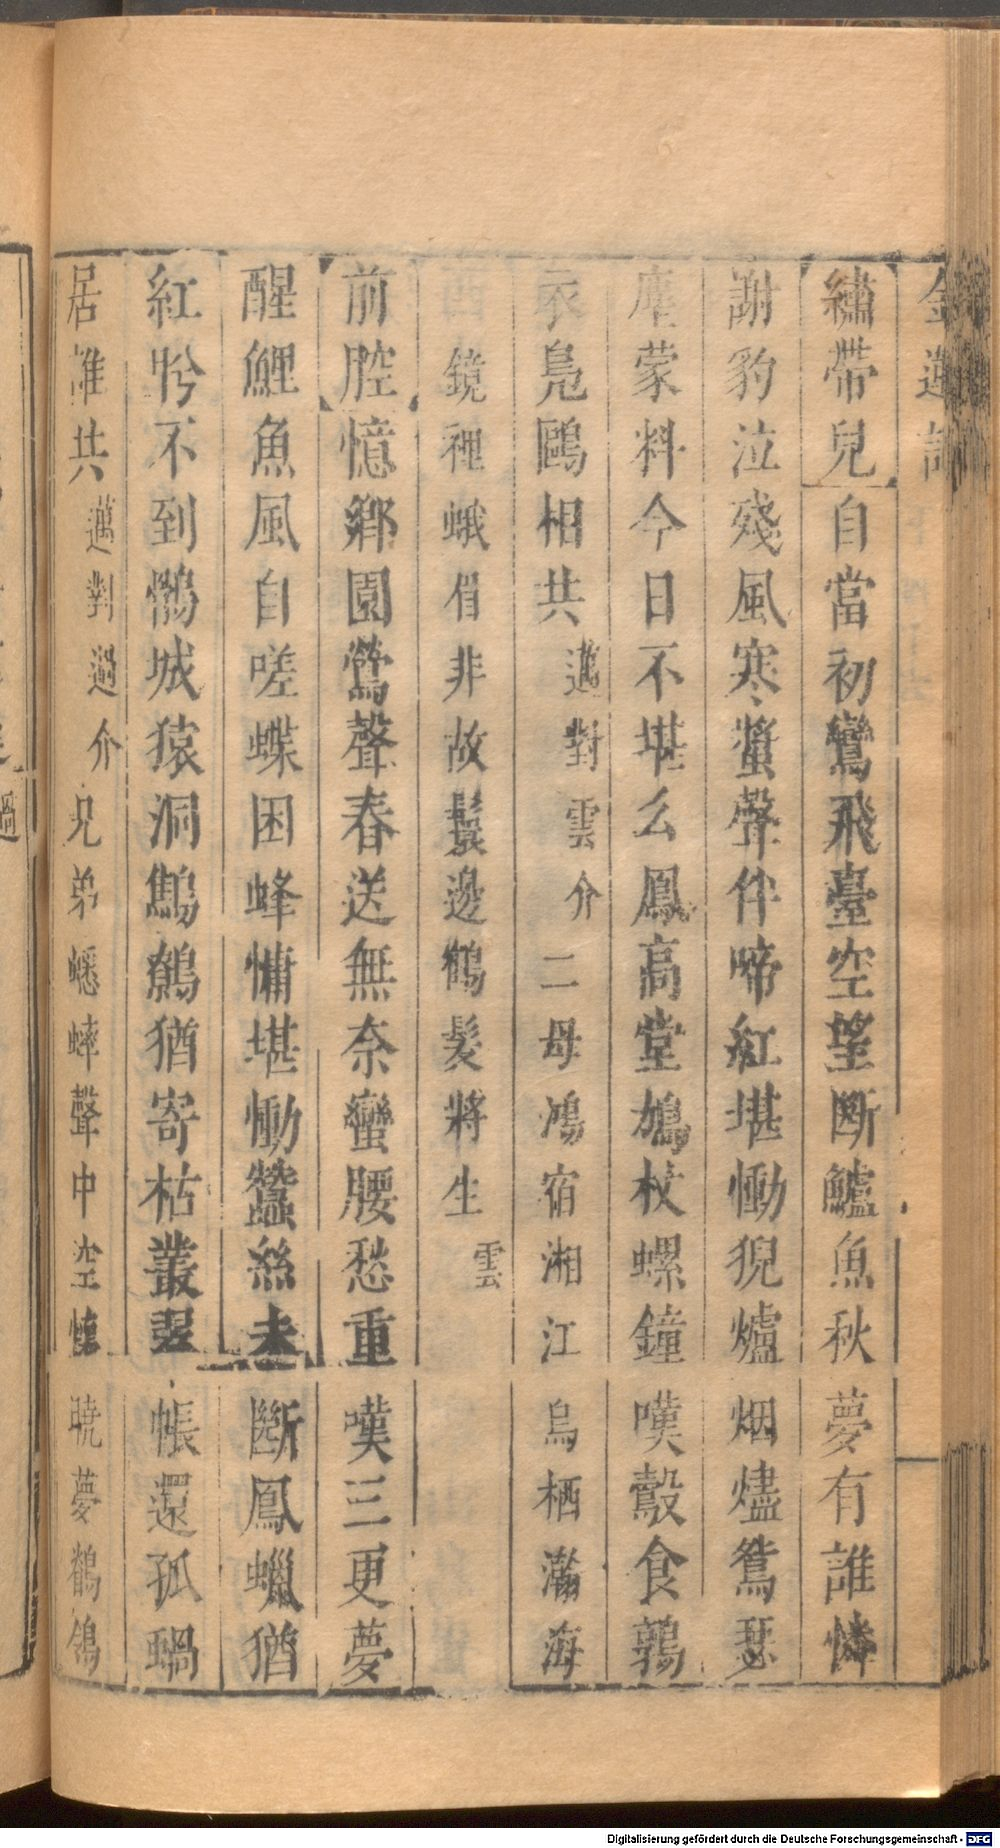 金蓮記
繡帶兒自當初鸞飛臺空望断鱸魚秋夢有誰憐
謝豹泣殘風寒螿聲伴啼紅堪慟猊爐烟燼鴛瑟
塵蒙料今日不堪么鳳高堂鳩杖螺鐘嘆鷇食鶉
衣鳧鷗相共邁對雲介二母鴻宿湘江烏栖瀚海
鏡裡蛾眉非故鬟邊鶴髮將生雲
前腔憶鄉園鶯聲春送無奈蠻腰愁重嘆三更夢
醒鯉魚風自嗟蝶困蜂慵堪慟蠶絲未斷鳳蠟猶
紅肹不到鵂城猿洞鷦鷯猶寄枯叢翠帳還孤蝸
居誰共邁對過介兄弟蟋蟀聲中空懷曉夢鶺鴒
Digitalisierung gefördert durch die Deutsche Forschungsgemeinschaft - DFG